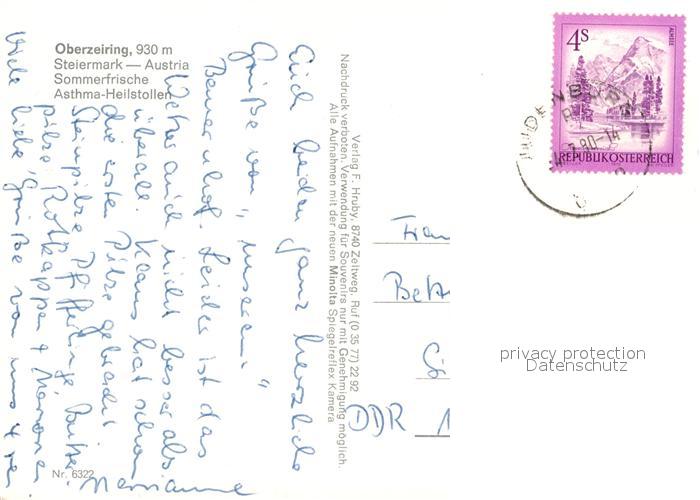 Oberzeiring, 930 m
Steiermark — Austria
Sommerfrische
Asthma-Heilstollen
Euch beiden ganz herzliche
Grüße von „unserem"
Bauernhof. Leider ist das
Wetter auch nicht besser als
überall. Klaus hat schon
die ersten Pilze gebracht
Steinpilze, Pfifferlinge, Butter-
pilze, Rotkappen + Maronen
Viele liebe Grüße von uns 4
Marianne
Nr. 6322
Verlag F. Hruby, 8740 Zeltweg, Ruf (0 35 77) 22 92
Nachdruck verboten. Verwendung für Souvenirs nur mit Genehmigung möglich.
Alle Aufnahmen mit der neuen Minolta Spiegelreflex Kamera
4S
ALMSEE
REPUBLIK ÖSTERREICH
80-14
Frau
DDR
privacy protection
Datenschutz